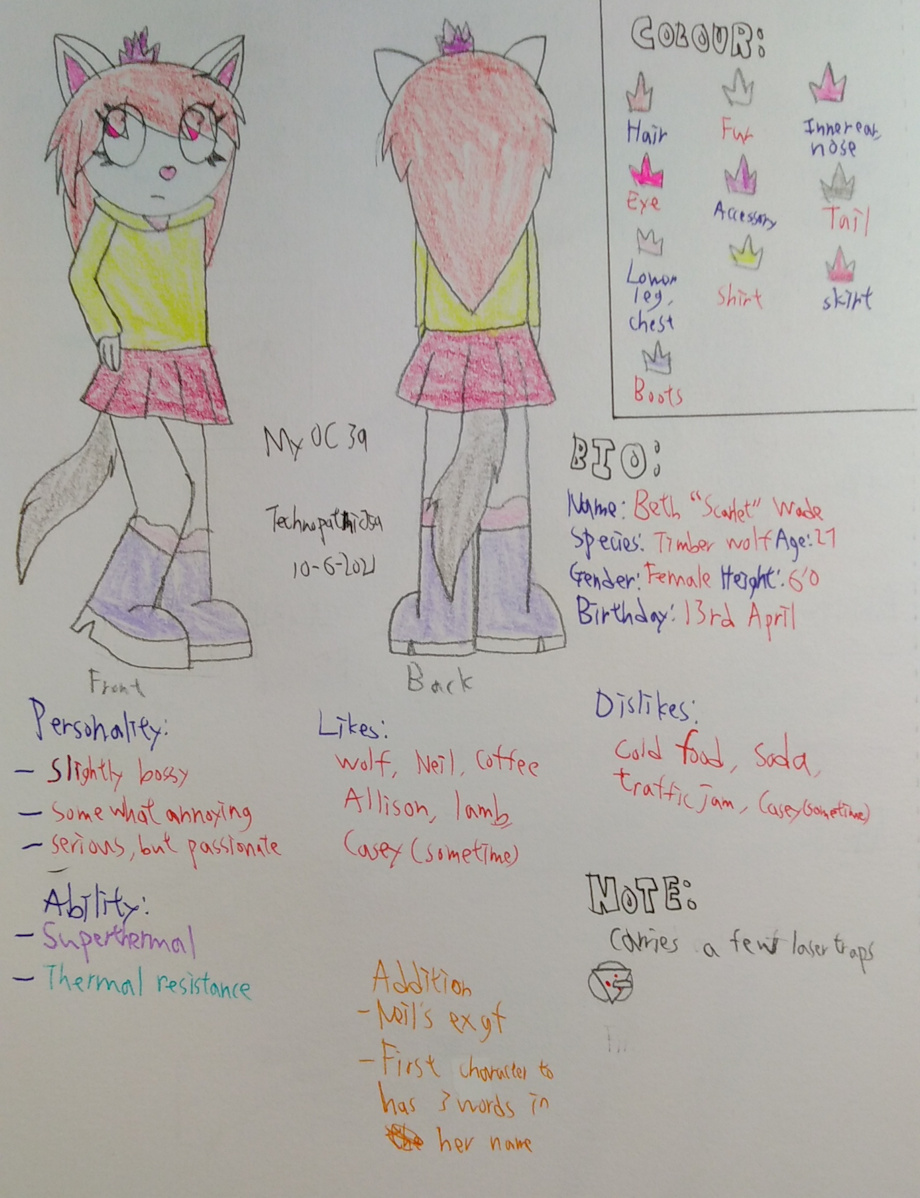 COLOUR:
Hair
Fur
Inner ear,
nose
Eye
Accessory
Tail
Lower
leg,
chest
Shirt
skirt
Boots
My OC 39
10-6-2021
Front
Back
BIO:
Name: Beth "Scarlet" Wade
Species: Timber wolf Age: 27
Gender: Female Height: 6'0
Birthday: 13rd April
Personality:
- Slightly bossy
- somewhat annoying
- serious, but passionate
Ability:
- Superthermal
- Thermal resistance
Likes:
Wolf, Neil, Coffee
Allison, lamb,
Casey (sometime)
Dislikes:
Cold food, Soda,
traffic jam, Casey (sometime)
NOTE:
Carries a few laser traps
Addition
- Neil's ex gf
- First character to
has 3 words in
her name